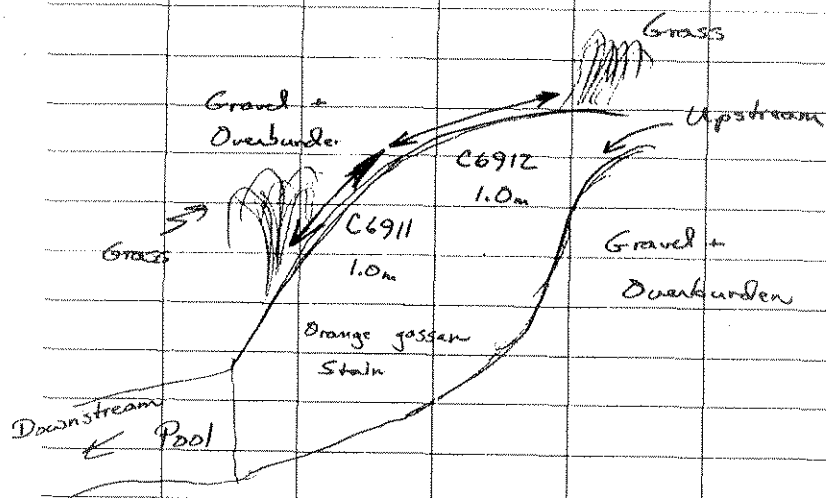 Grass
Gravel +
Overburden
Upstream
C6912
1.0m
Grass
C6911
1.0m
Gravel +
Overburden
Orange gossan
Stain
Downstream
Pool